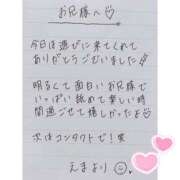 お兄様へ♡
今日は遊びに来てくれて
ありがとうございました
明るくて面白いお兄様で
いっぱい舐めて楽しい時
間過ごせて嬉しかったよ♡
次はコンタクトで!笑
えまより☺